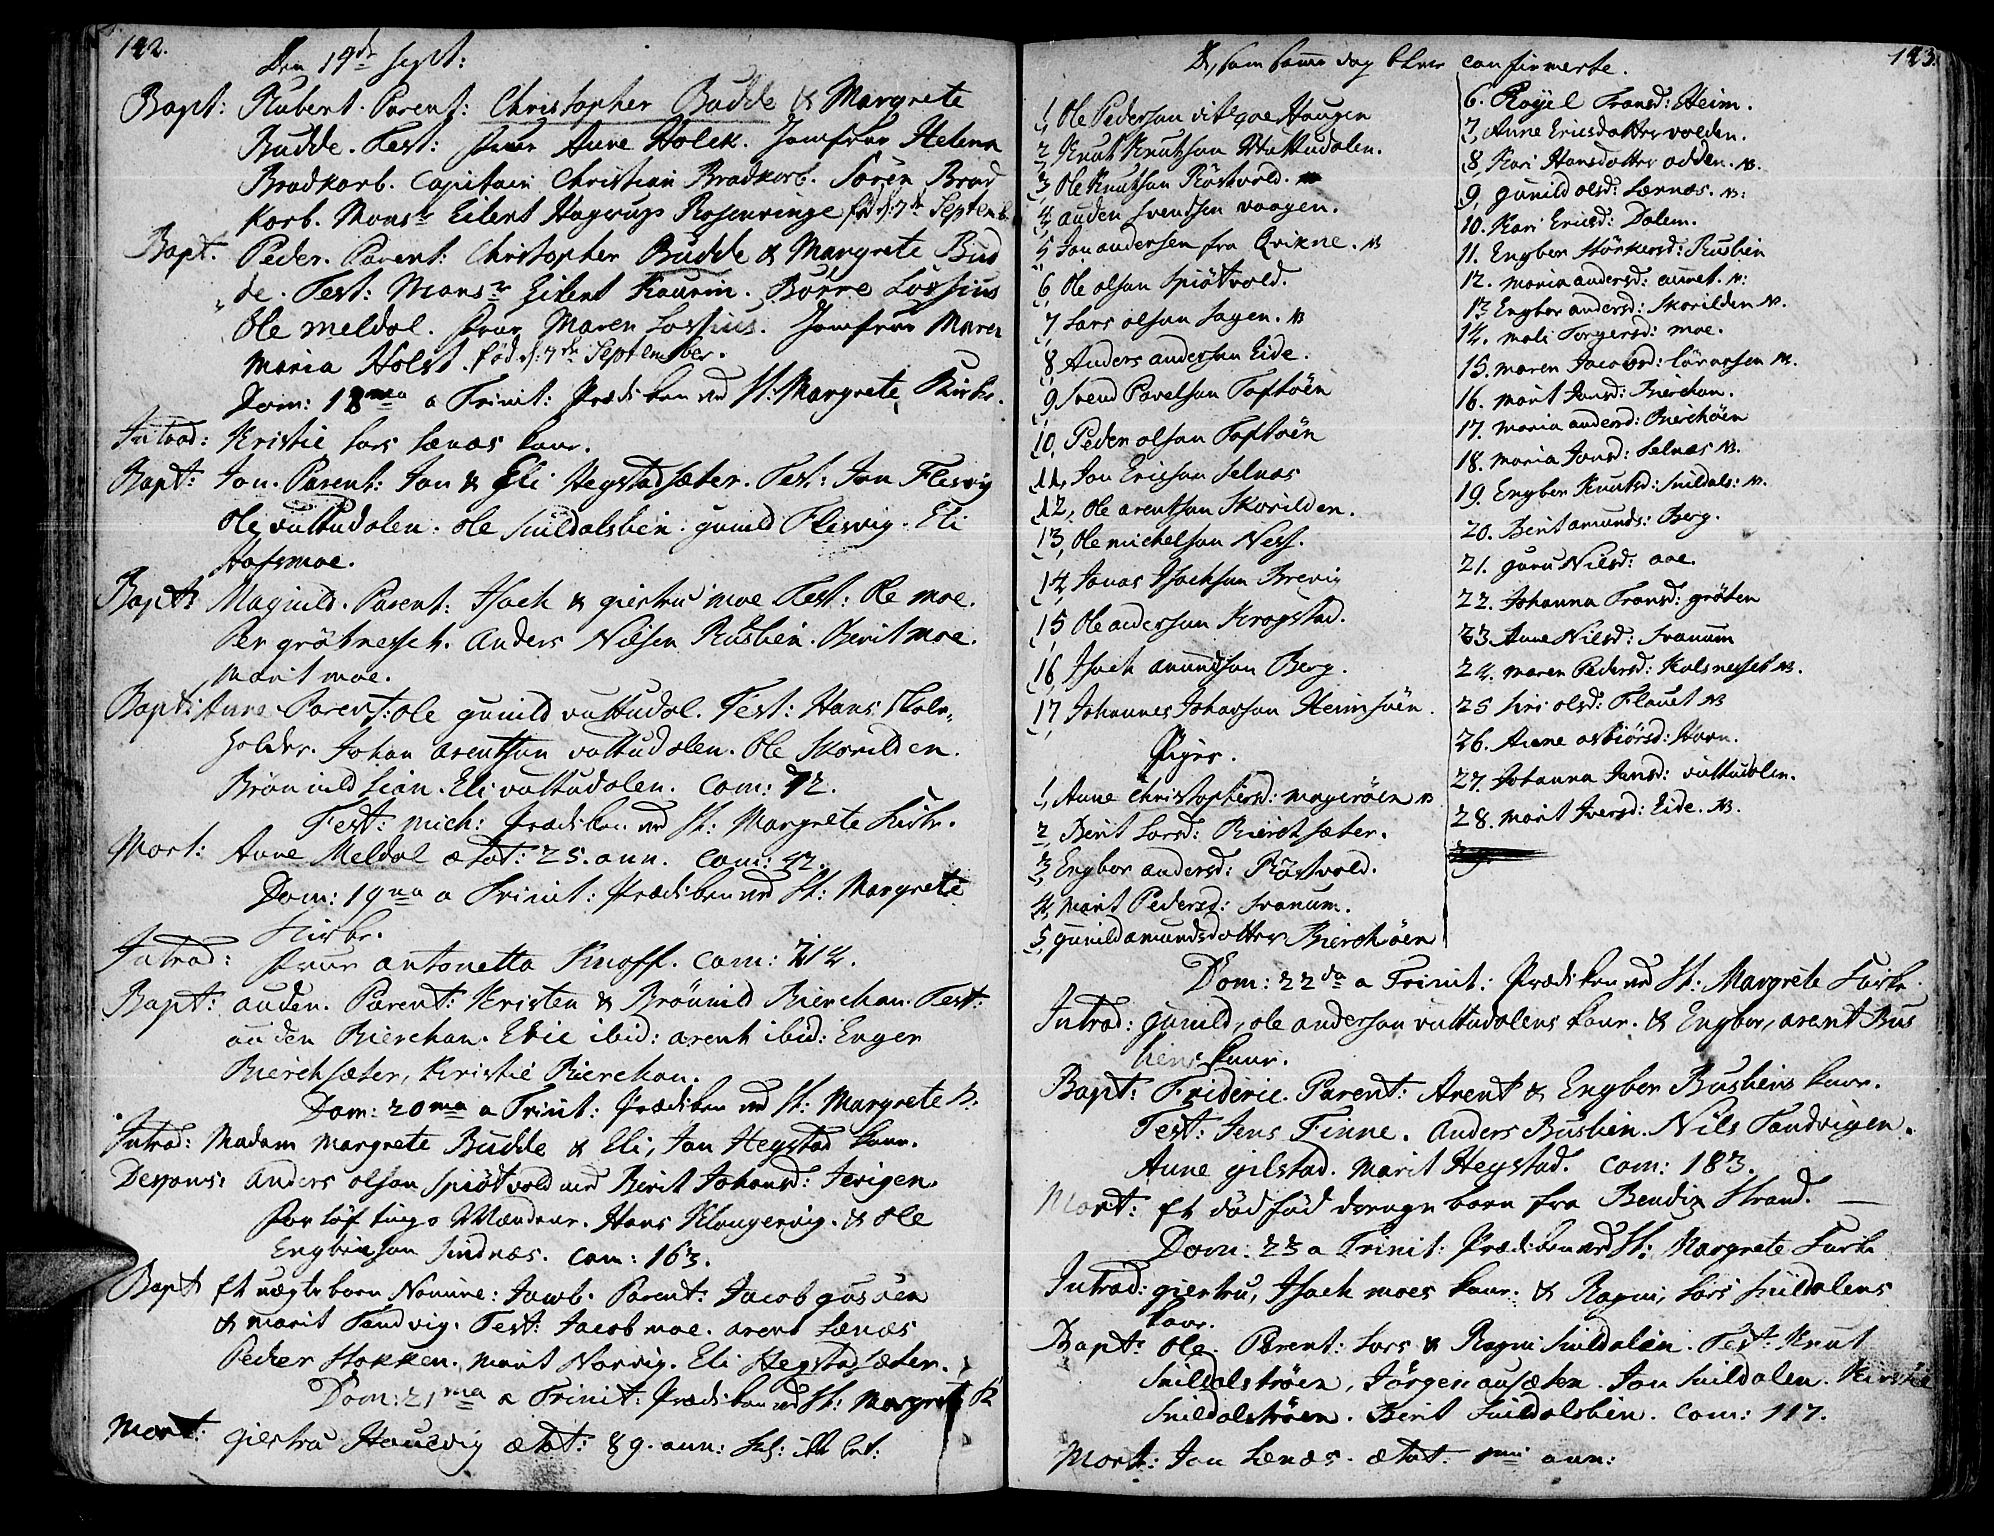 142.
Den 19de Sept:
Bapt: Rubert. Parent: Christopher Budde & Margrete
Budde. Test: Frue Anne Holck. Jomfrue Helena
Bradkorb. Capitain Christian Bradkorb. Sören Brad
korb. Monsr Eilert Hagerup Rosenvinge fød d: 7de Septemb
Bapt. Peder. Parent: Christopher Budde & Margrete Bud
de. Test: Monsr Eilert Kaurin. Börre Lossius
Ole Meldal. Frue Maren Lossius. Jomfrue Maren
Maria Holst fød d: 7de September.
Dom: 18va a Trinit: Prædiken ved St: Margrete Kirke.
Introd: Kristie Lars Lenæs kone.
Bapt: Jon. Parent: Jon & Eli Hegstadsæter. Test: Jon Flesvig
Ole Vuttudalen. Ole Snildalslien. Gunild Flesvig. Eli
Hafsmoe.
Bapt: Magnild. Parent: Isach & Giertru Moe Test: Ole Moe.
Per Grötnesset. Anders Nilsen Ruslien. Berit Moe.
Marit Moe.
Bapt: Anne Parent: Ole Gunild Vuttudal. Test: Hans Skole-
holder. Johan Arentsen Vuttudalen. Ole Skorilden.
Brönnild Lian. Eli Vuttudalen. Com: 72.
Fest: Mich: Prædiken ved St: Margrete Kirke.
Mort: Anne Meldal ætat: 25. ann. Com: 92.
Dom: 19na a Trinit: Prædiken ved St: Margrete
Kirke.
Introd: Frue Antonetta Knoff. Com: 214.
Bapt: Auden. Parent: Kristen & Brönnild Bierckan. Test:
Auden Bierckan. Eric ibid: Arent ibid: Enger
Bierchsæter, Kristie Bierckan.
Dom: 20ma a Trinit: Prædiken ved St: Margrete K:
Introd: Madam Margrete Budde & Eli, Jon Hegstad kone.
Despons: Anders Olson Spiøtvold med Berit Johansd: Jerigen.
Forløftings Mændene. Hans Klungervig. & Ole
Engbrigtson Sindnæs. Com: 163.
Bapt Et uægte barn Nomine: Jacob. Parent: Jacob Gusöen
& Marit Tandvig. Test: Jacob Moe. Arent Lenæs
Peder Stokken. Marit Norvig. Eli Hegstadsæter.
Dom: 21ma a Trinit: Prædiken ved St: Margrete K
Mort: Giertru Haucvig ætat: 89. ann:
143.
De, som samme dag bleve confirmerte.
1, Ole Pederson Haugen
2, Knut Knutson Wuttudalen.
3, Ole Knutson Röstvold.
4, Auden Svendsen Vaagen.
5, Jon Andersen fra Qvikne. NB
6, Ole Olson Spiötvold.
7, Lars Olson Sagen. NB
8, Anders Anderson Eide.
9, Svend Pavelson Toftöen
10, Peder Olson Toftöen
11, Jon Ericson Selnæs
12, Ole Arentson Skorilden.
13, Ole Michelson Ness.
14, Jonas Isachson Brevig
15, Ole Anderson Krogstad.
16, Isach Amundson Berg.
17, Johannes Johanson Heimsöen.
Piger.
1, Anne Christophersd: Mageröen NB
2, Berit Larsd: Bierchsæter.
3, Engbor Andersd: Röstvold.
4, Marit Pedersd: Sranum.
5, Gunild Amundsdatter Bierchöen
6. Royel Transd: Heim.
7, Anne Ericsdatter Volden.
8, Kari Hansdatter Odden. NB.
9, Gunild Olsd: Lernæs. NB:
10. Kari Ericsd: Dalem.
11. Engbor Störkersd: Ruslien
12. Maria Andersd: Aunet. NB:
13. Engbor Andersd: Skorilden NB.
14. Mali Torgersd: Moe.
15. Maren Jacobsd: Lörarsen NB.
16. Marit Jonsd: Bierckan.
17. Maria Andersd: Bierchöen
18. Maria Jonsd: Selnæs NB.
19. Engbor Knutsd: Snildal: NB.
20. Berit Amunds: Berg.
21. Guru Nilsd: Aae.
22. Johanna Transd: Gröten
23. Anne Nilsd: Sranum
24. Maren Pedersd: Kalsnesset NB.
25 Siri Olsd: Flauet NB
26. Anne Asbiörsd: Stören.
27. Johanna Jonsd: Vuttudalen.
28. Marit Iversd: Eide. NB.
Dom: 22da a Trinit: Prædiken ved St: Margrete Kirke.
Introd: Gunild, Ole Anderson Vuttudalens kone. & Engbor, Arent Bus
liens kone.
Bapt: Frideric. Parent: Arent & Engbor Buslien kone.
Test: Jens Finne. Anders Buslien. Nils Tandvigen.
Anne Gilstad. Marit Hegstad. Com: 183.
Mort: Et dødfød drenge barn fra Bendix Strand.
Dom: 23 a Trinit: Prædiken ved St: Margrete Kirke
Introd: Giertru, Isach Moes kone. & Ragni, Lars Snildalens
kone.
Bapt: Ole. Parent: Lars & Ragni Snildalen. Test: Knut
Snildalströen, Jörgen Ausæten. Jon Snildalen. Kirstie
Snildalströen. Berit Snildalslien. Com: 117.
Mort: Jon Lenæs. ætat: ann: